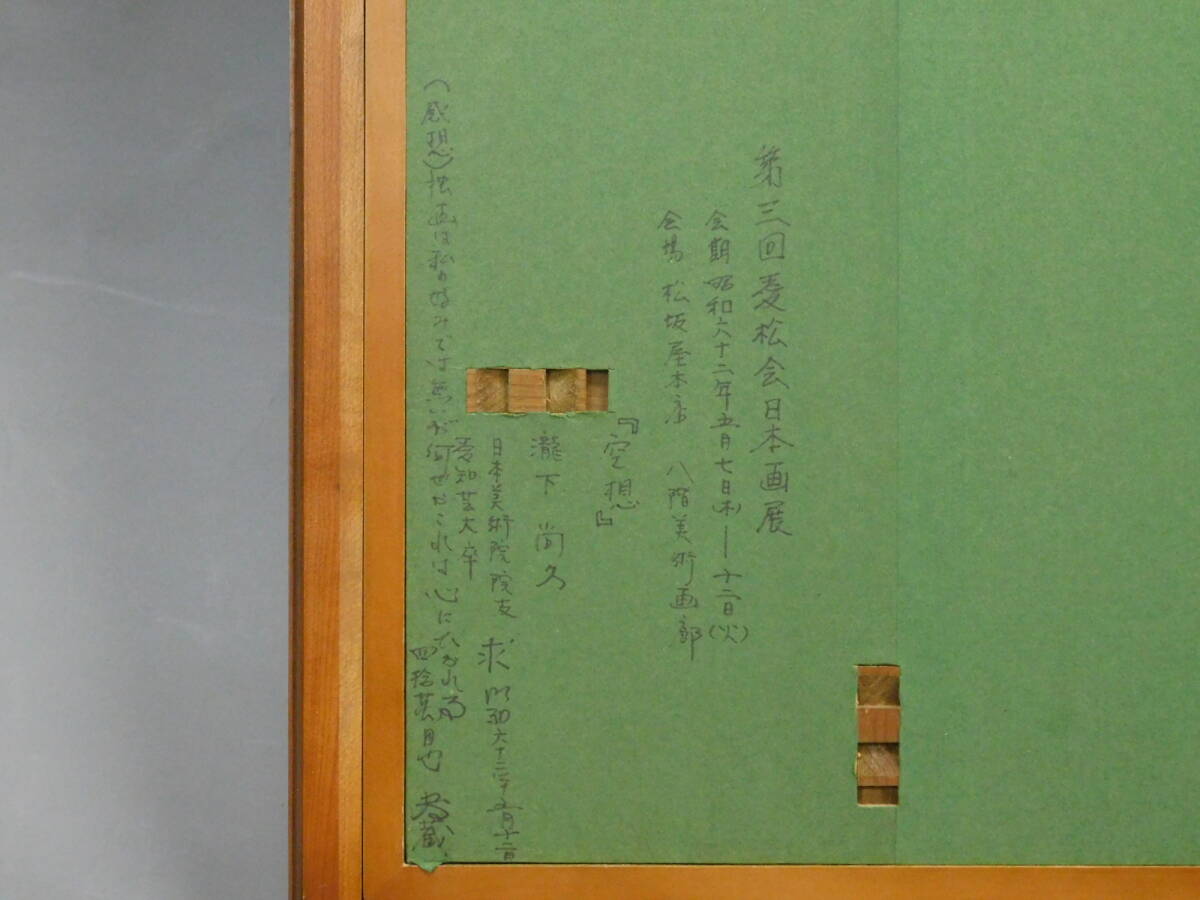 第三回愛松会日本画展
会期昭和六十二年五月七日(木)—十二日(火)
会場 松坂屋本店 八階美術画部
『空想』
瀧下尚久
日本美術院院友
愛知芸大卒
求 昭和六十二年五月十二日
(感想)拙画は私の好みでは無いが何せだこれは心にたかれ為
四捨
蔵